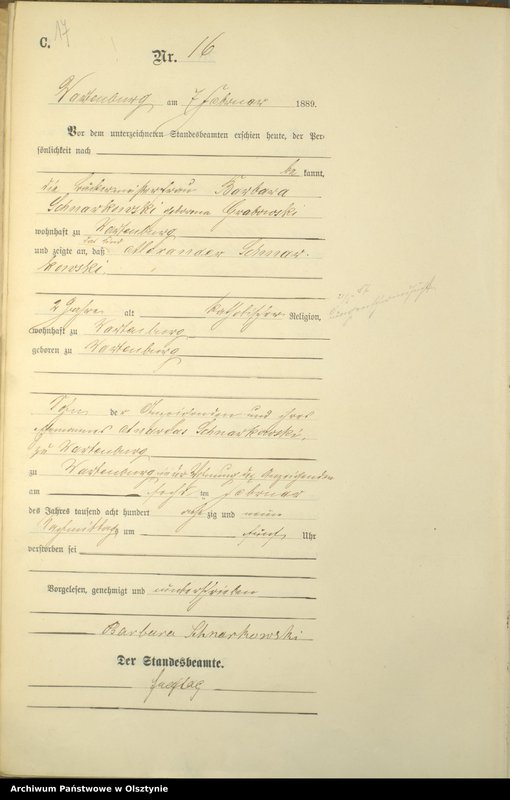 C.
17
Nr. 16
Wartenburg am 7 Februar 1889.
Vor dem unterzeichneten Standesbeamten erschien heute, der Per-
sönlichkeit nach
be kannt,
die Barbara
Schnarkowski geborene Grabowski
wohnhaft zu Wartenburg
das Kind
und zeigte an, daß Alexander Schnar-
kowski
2 Jahre alt katholischer Religion,
wohnhaft zu Wartenburg
geboren zu Wartenburg
Sohn der Anzeigenden und ihres
Ehemannes Andreas Schnarkowski,
zu Wartenburg
zu Wartenburg in der Wohnung der Anzeigenden
am sechsten Februar
des Jahres tausend acht hundert achtzig und neun
Nachmittags um fünf Uhr
verstorben sei
Vorgelesen, genehmigt und unterschrieben
Barbara Schnarkowski
Der Standesbeamte.
Freytag
Archiwum Państwowe w Olsztynie